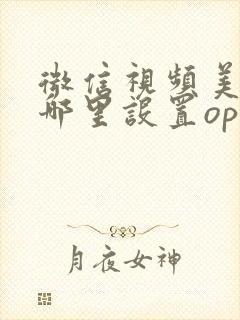 微信視頻美
哪里設置op
月夜女神